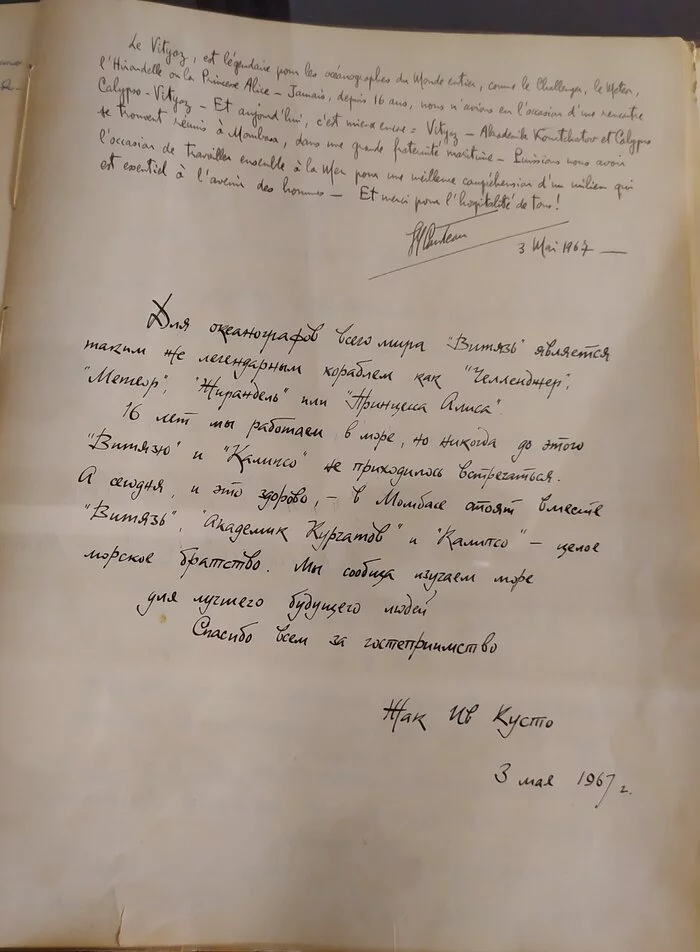 Le Vityaz, est légendaire pour les océanographes du Monde entier, comme le Challenger, le Meteor,
l'Hirondelle ou la Princesse Alice - Jamais, depuis 16 ans, nous n'avions eu l'occasion d'une rencontre
Calypso - Vityaz - Et aujourd'hui, c'est mieux encore = Vityaz - Akademik Kourtchatov et Calypso
se trouvent réunis à Mombasa, dans une grande fraternité maritime - Puissions nous avoir
l'occasion de travailler ensemble à la Mer pour une meilleure compréhension d'un milieu qui
est essentiel à l'avenir des hommes - Et merci pour l'hospitalité de tous!
3 Mai 1967 —
Для океанографов всего мира "Витязь" является
таким же легендарным кораблем как "Челленджер",
"Метеор", "Жирандель" или "Принцесса Алиса".
16 лет мы работаем в море, но никогда до этого
"Витязю" и "Калипсо" не приходилось встречаться.
А сегодня, и это здорово, - в Момбасе стоят вместе
"Витязь", "Академик Курчатов" и "Калипсо" - целое
морское братство. Мы сообща изучаем море
для лучшего будущего людей
Спасибо всем за гостеприимство
Жак Ив Кусто
3 мая 1967 г.